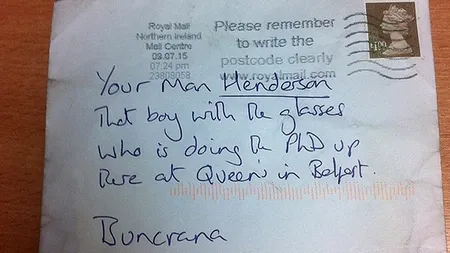 Royal Mail
Northern Ireland
Mail Centre
09.07.15
07.24 pm
23808058
Please remember
to write the
postcode clearly
www.royalmail.com
£1.00
Your Man Henderson
That boy with the glasses
who is doing the PhD up
there at Queen's in Belfast.
Buncrana